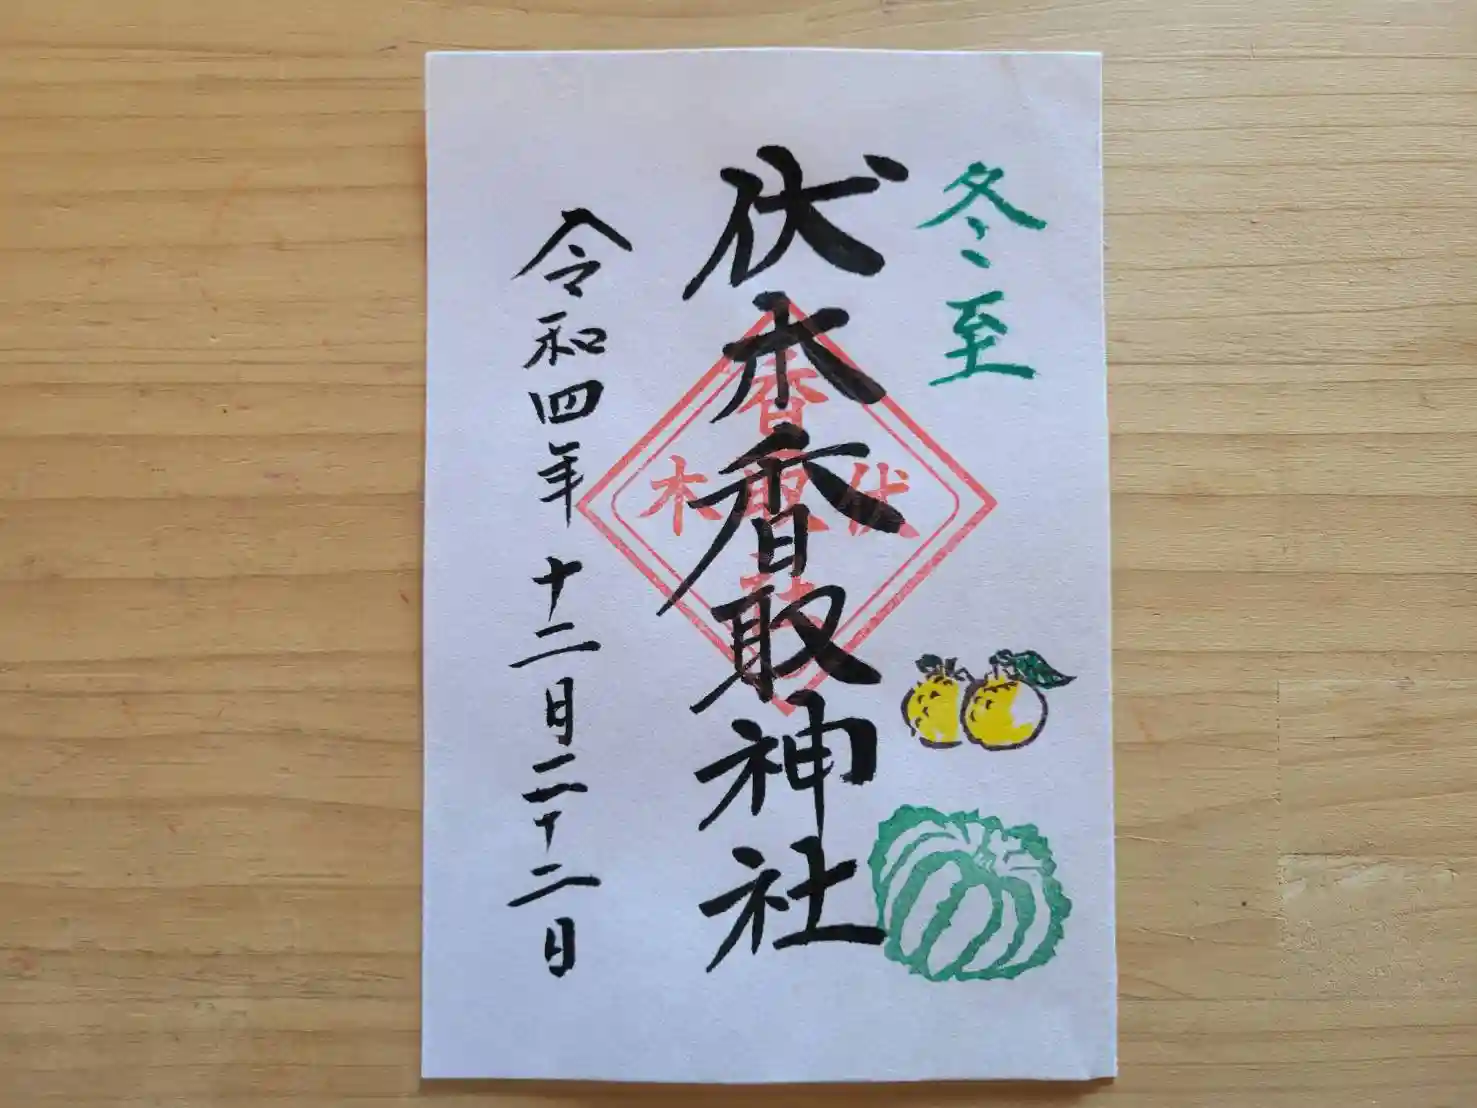 冬至
伏木香取神社
令和四年十二月二十二日
伏
木
香取